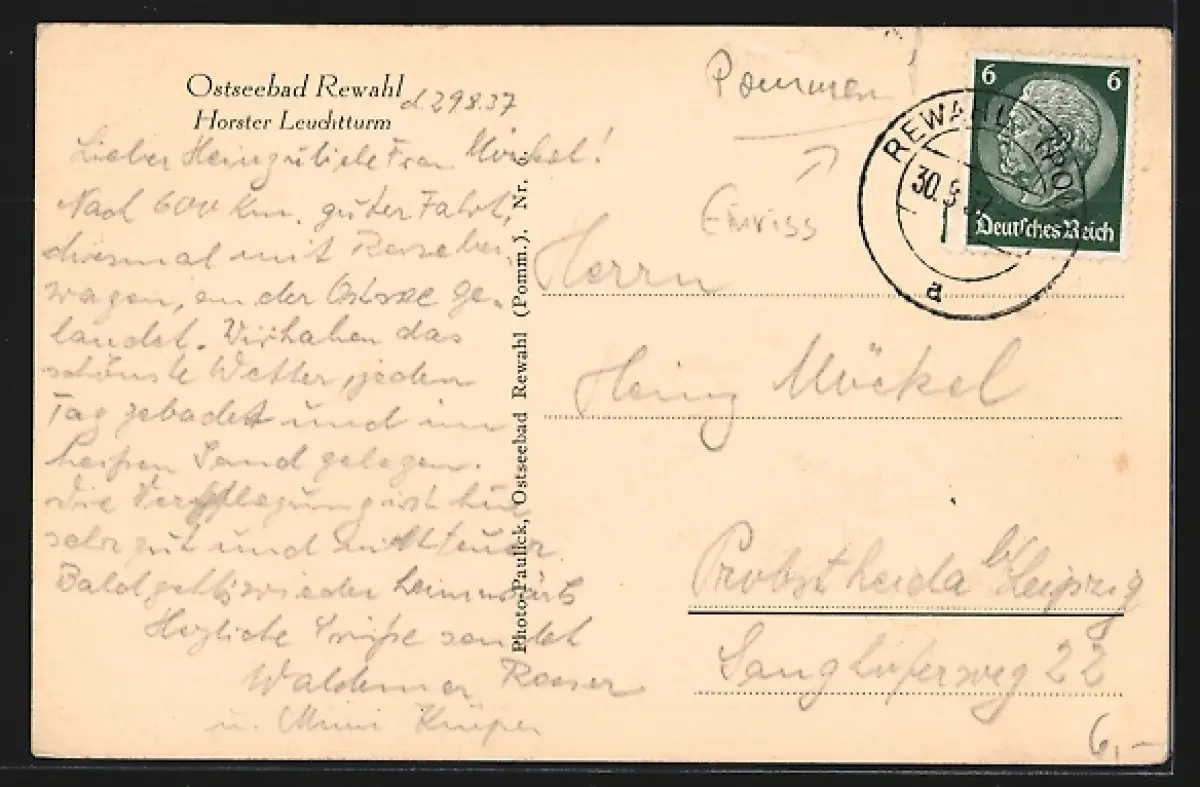 Ostseebad Rewahl
Horster Leuchtturm
d. 29.8.37
Lieber Heinz u. liebe Frau Möckel!
Nach 600 Km. guter Fahrt,
diesmal mit
wagen, an der Ostsee ge-
landet. Wir haben das
schönste Wetter, jeden
Tag gebadet und im
heißen Sand gelegen.
Die Verpflegung ist hier
sehr gut und nicht teuer
Bald geht's wieder heimwärts
Herzliche Grüße sendet
Waldemar
u. Mimi
Photo-Paulick, Ostseebad Rewahl (Pomm.). Nr. 6.
Pommern!
Einriss
6 6
Deutsches Reich
REWAHL (POM
30.8.37
a
Herrn
Heinz Möckel
Probstheida b/Leipzig
22
6,-